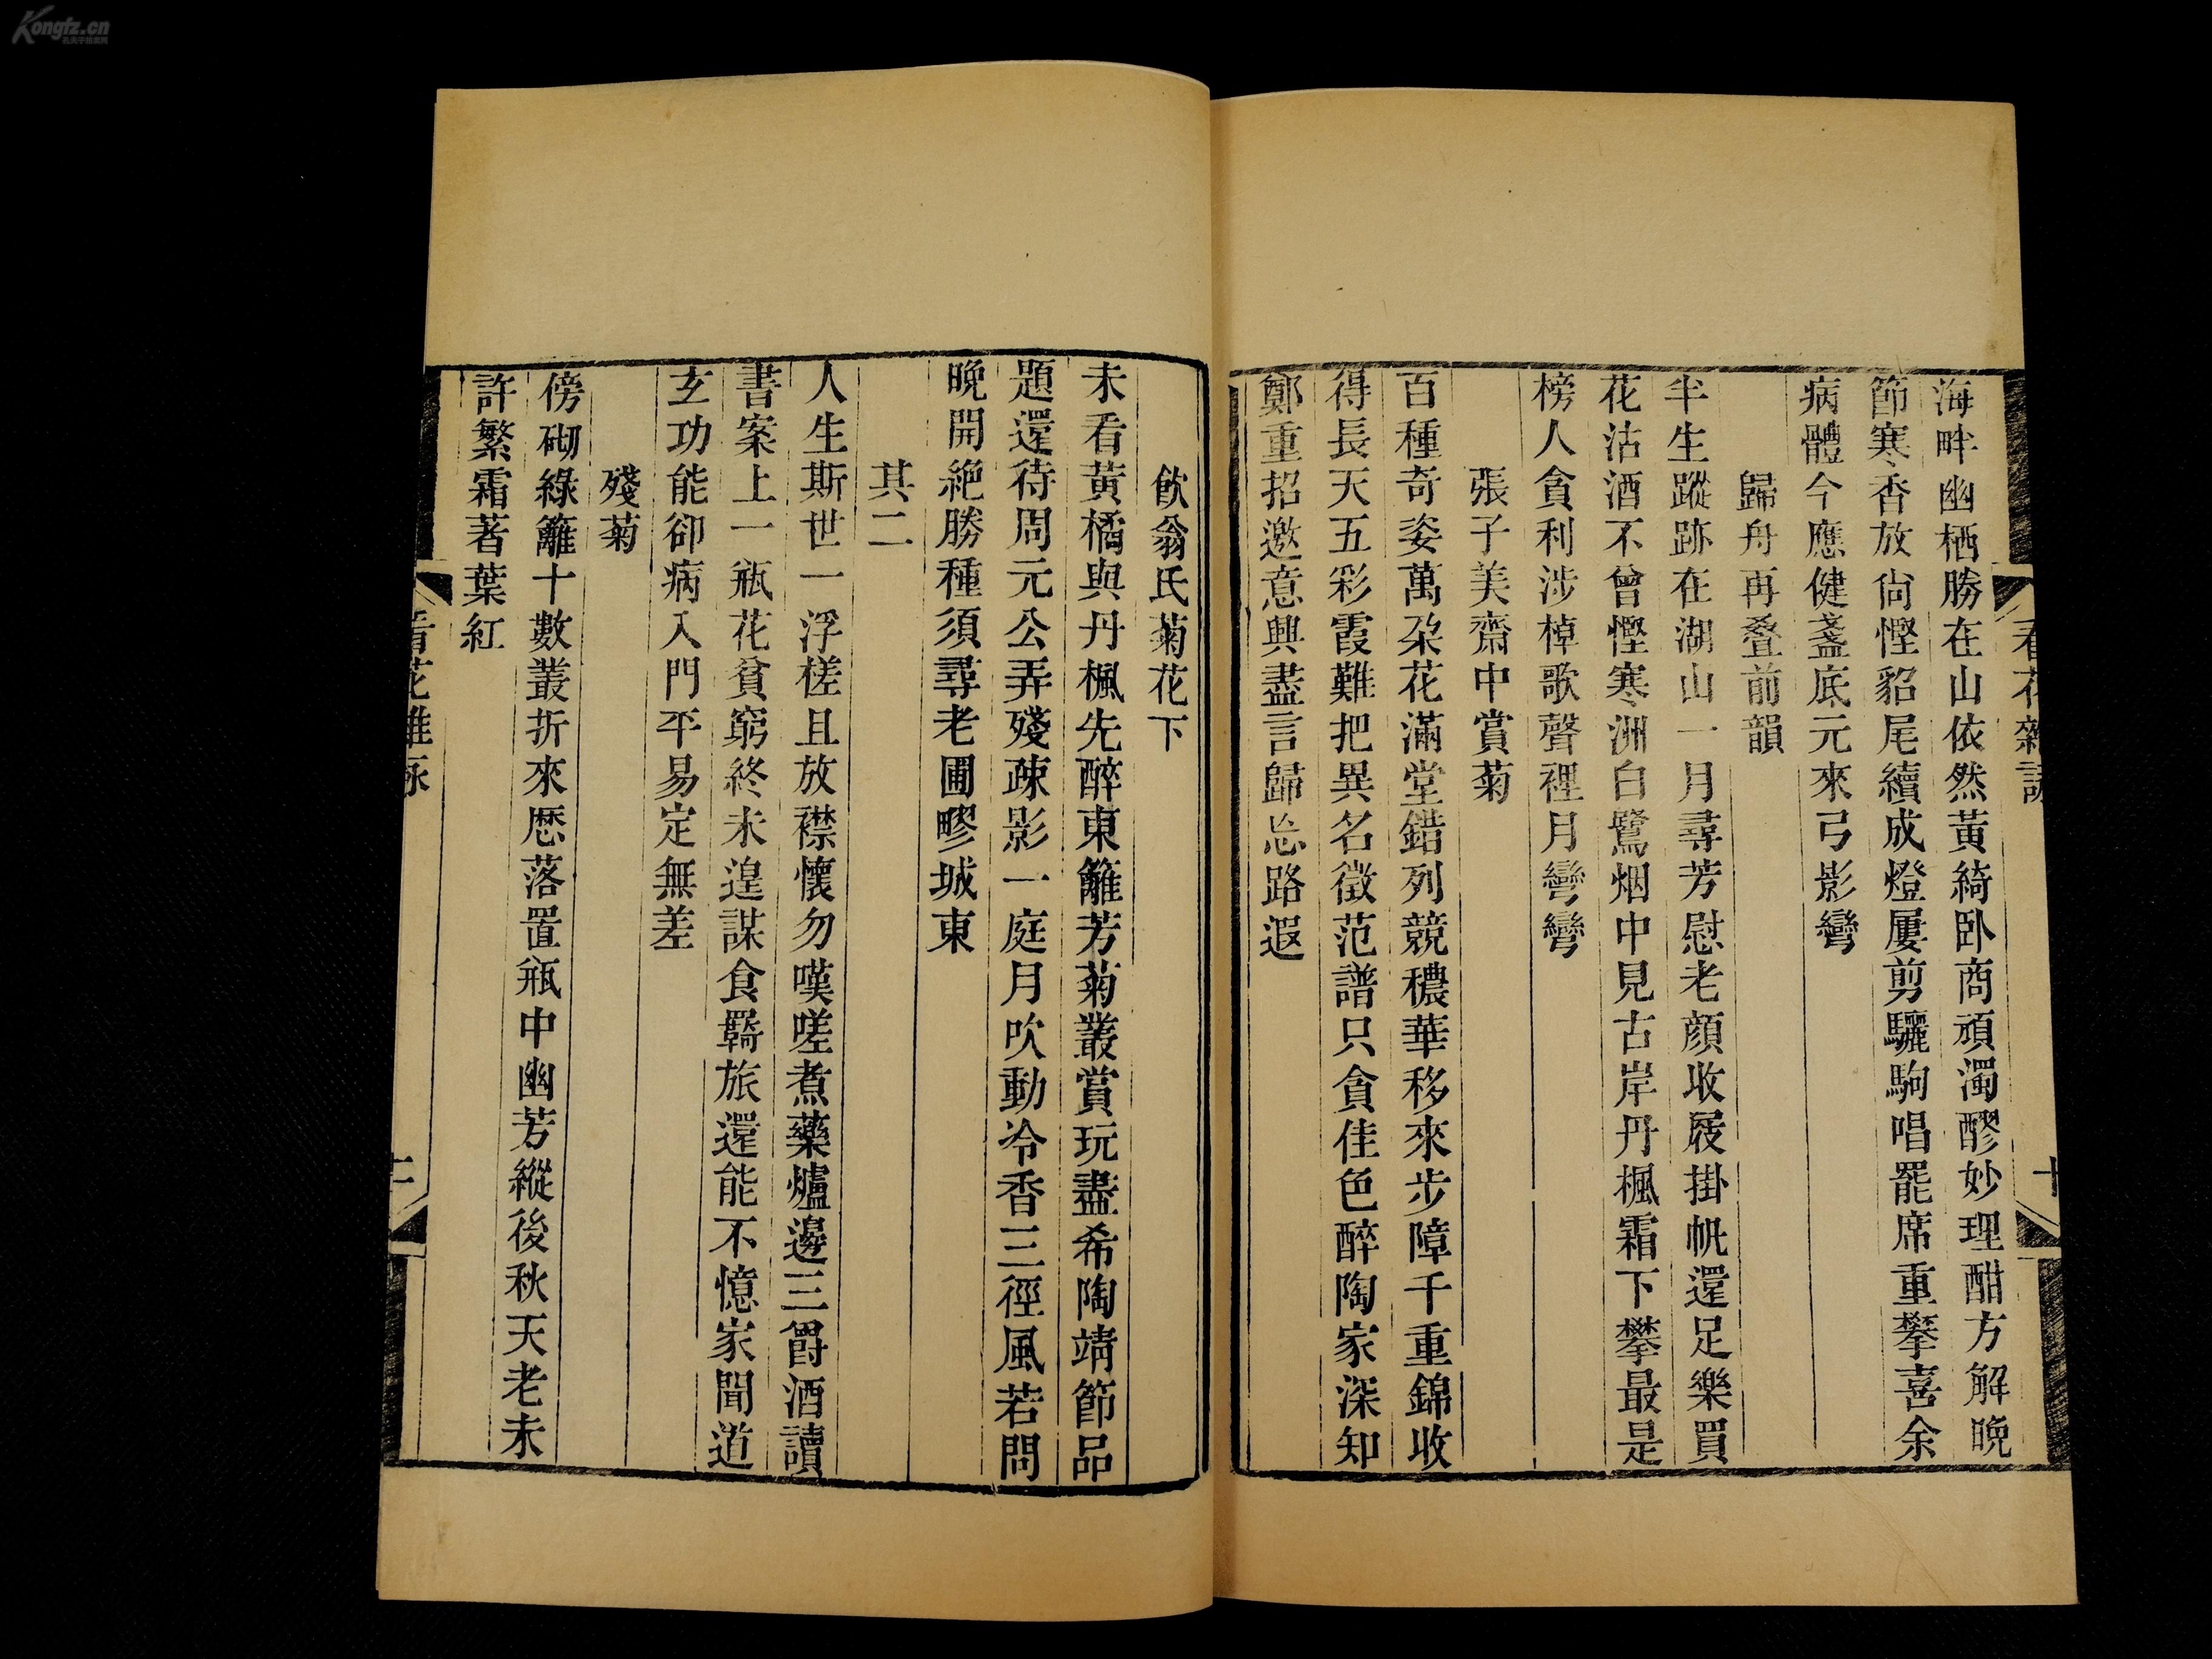 Kongfz.cn
孔夫子旧书网
海畔幽栖勝在山依然黃綺卧商頑濁醪妙理酣方解晚
節寒香放尙慳貂尾續成燈屢剪驪駒唱罷席重攀喜余
病體今應健盞底元來弓影彎
歸舟再叠前韻
半生蹤跡在湖山一月尋芳慰老顔收屐掛帆還足樂買
花沽酒不曾慳寒洲白鷺烟中見古岸丹楓霜下攀最是
榜人貪利涉棹歌聲裡月彎彎
張子美齋中賞菊
百種奇姿萬朶花滿堂錯列競穠華移來步障千重錦收
得長天五彩霞難把異名徵范譜只貪佳色醉陶家深知
鄭重招邀意興盡言歸忘路遐
看花雜詠
十
飲翁氏菊花下
未看黃橘與丹楓先醉東籬芳菊叢賞玩盡希陶靖節品
題還待周元公弄殘疎影一庭月吹動冷香三徑風若問
晚開絶勝種須尋老圃郺城東
其二
人生斯世一浮槎且放襟懷勿嘆嗟煮藥爐邊三爵酒讀
書案上一瓶花貧窮終未遑謀食羇旅還能不憶家聞道
玄功能卻病入門平易定無差
殘菊
傍砌綠籬十數叢折來歷落置瓶中幽芳縱後秋天老未
許繁霜著葉紅
看花雜詠